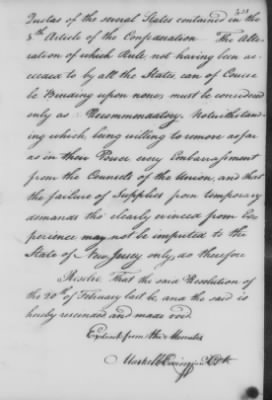 Quotas of the several States contained in the
8th Article of the Confederation The Alte-
ration of which Rule, not having been ac-
ceeded to by all the States, can of Course
be Binding upon none, must be considered
only as Recommendatory. Notwithstand-
ing which, being willing to remove as far
as in their Power every Embarrassment
from the Councils of the Union, and that
the failure of Supplies from temporary
demands tho clearly evinced from Ex-
perience may not be imputed to the
State of New Jersey only, do therefore
Resolve That the said Resolution of
the 20th of February last be, and the said is
hereby rescinded and made void
Extract from the Minutes
Clk